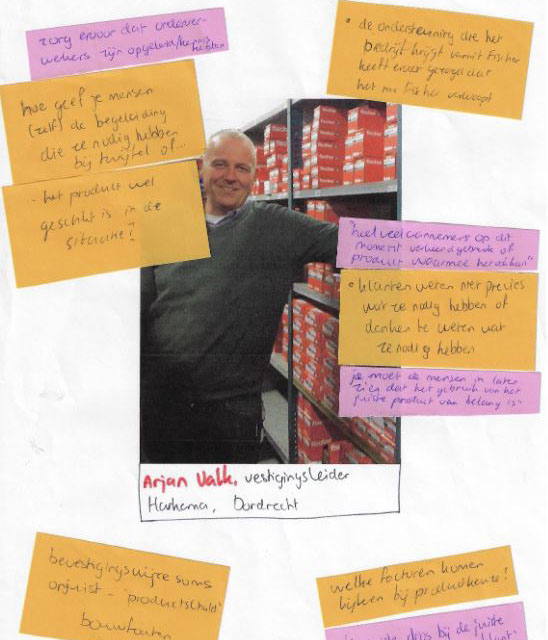 zorg ervoor dat onderver-
werkers zijn opgeleid/kennis
hebben
• de ondersteuning die het
bedrijf krijgt vanuit Fischer
heeft ervoor gezorgd dat
het nu Fisher verkoopt
hoe geef je mensen
(zelf) de begeleiding
die ze nodig hebben
bij twijfel of...
.. het product wel
geschikt is in de
situatie?
"heel veel aannemers op dit
moment verkeerd gebruik of
product waarmee
• klanten weten niet precies
wat ze nodig hebben of
denken te weten wat
ze nodig hebben
je moet de mensen in laten
zien dat het gebruik van het
juiste product van belang is
Arjan Valk, vestigingsleider
Harkema, Dordrecht
bevestigingswijze soms
onjuist - "productschuld"
bouwfouten
welke factoren komen
kijken bij productkeuze?
bij de juiste